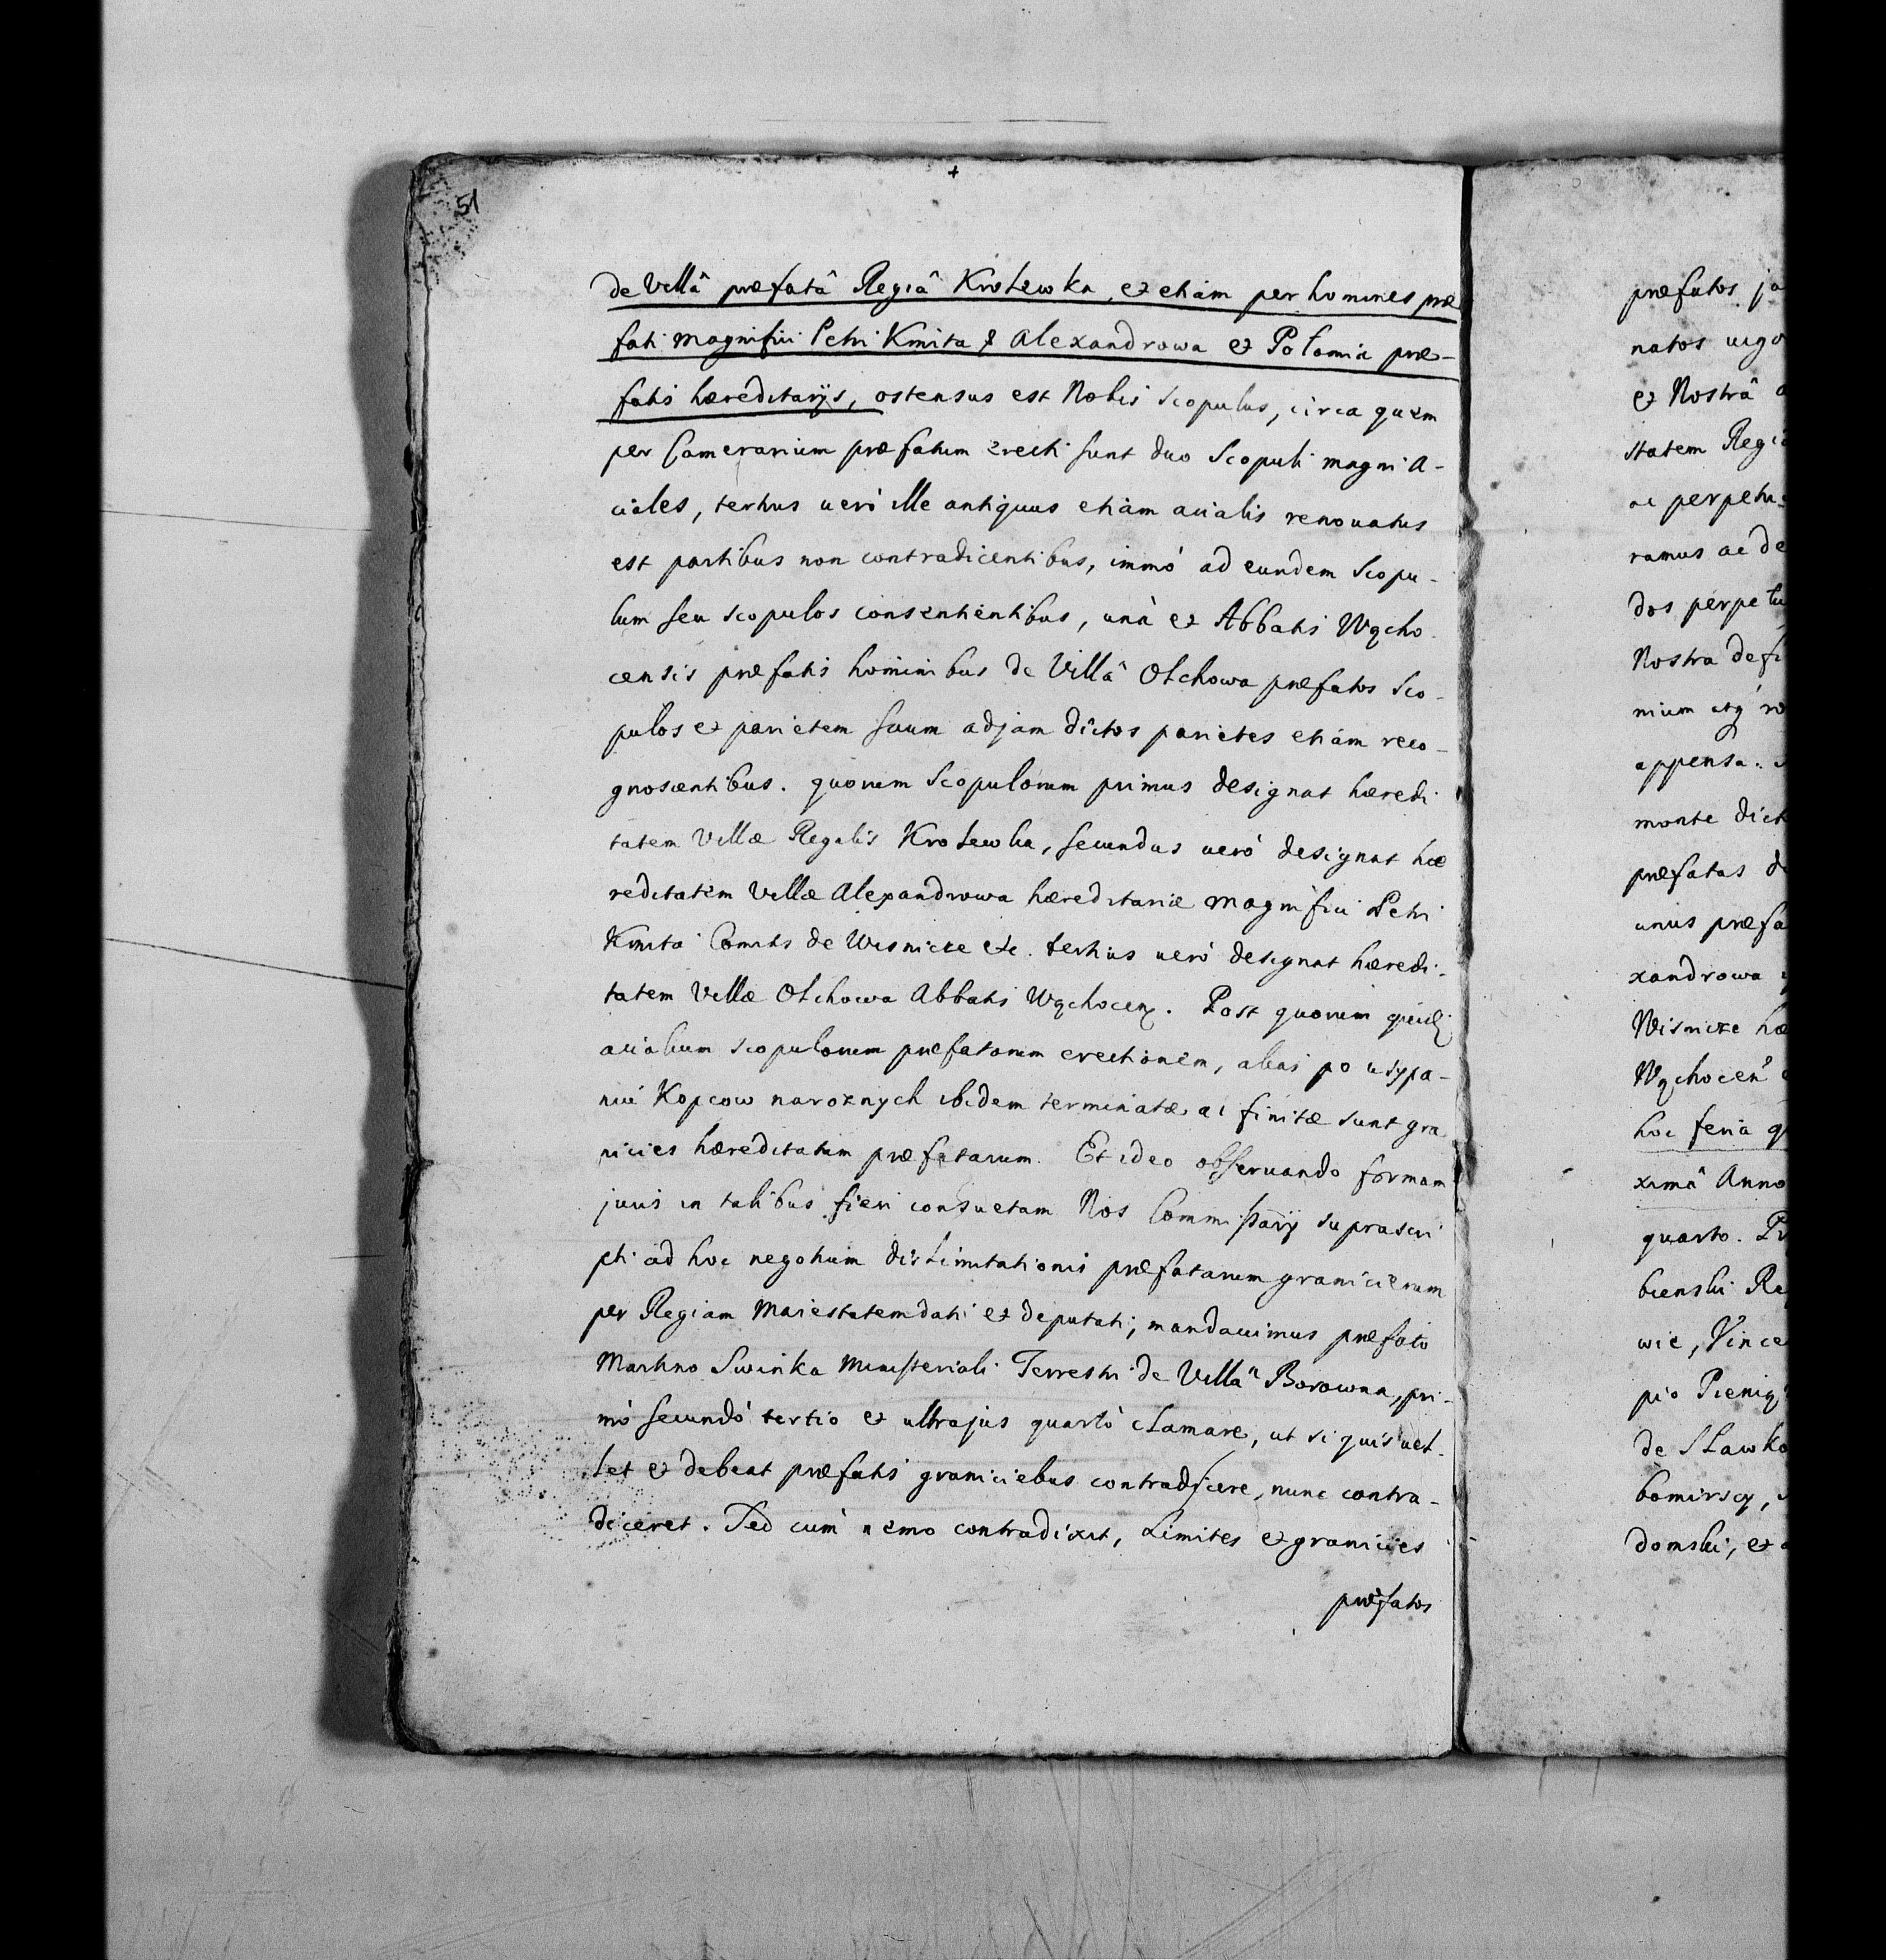 51
de Villâ præfatâ Regiâ Krolewka, et etiam per homines præ
fati Magnifici Petri Kmita & Alexandrowa et Połomia præ-
fatis hæreditarijs, ostensus est Nobis Scopulus, circa quem
per Camerarium præfatum erecti sunt duo Scopuli magni A-
ciales, tertius verò ille antiquus etiam acialis renouatus
est partibus non contradicentibus, immò ad eundem Scopu-
lum seu scopulos consentientibus, unà et Abbatis Wącho
censis præfatis hominibus de Villâ Olchowa præfatos Sco-
pulos et parietem suum adjam dictos parietes etiam reco-
gnoscentibus. quorum Scopulorum primus designat hæredi
tatem Villæ Regalis Krolewka, secundus uerò designat hæ
reditatem Villæ Alexandrowa hæreditariæ Magnifici Petri
Kmita Comitis de Wisnicze etc. tertius uerò designat hæredi-
tatem Villæ Olchowa Abbatis Wąchocen. Post quorum
acialium scopulorum præfatorum erectionem, alias po usypa-
niu Kopcow naroznych ibidem terminatæ ac finitæ sunt gra
nicies hæreditatum præfatarum. Et ideo obseruando formam
juris in talibus fieri consuetam Nos Commissarij suprascri
pti ad hoc negotium dislimitationis præfatarum granicierum
per Regiam Maiestatem dati et deputati; mandauimus præfato
Martino Swinka Ministeriali Terrestri de Villa Borowna, pri-
mò secundò tertio et ultrajus quartò clamare, ut si quis uel-
let et debeat præfatis graniciebus contradicere, nunc contra-
diceret. Sed cum nemo contradixit, Limites et granicies
præfatos
præfatos ja
natos uigo
et Nostrâ a
statem Regiâ
ac perpetu
ramus ac de
dos perpetu
Nostra defi
nium atq ro
appensa.
monte dict
præfatas d
unius præfa
xandrowa
Wisnicze hæ
Wąchocen
hoc feria q
ximâ Anno
quarto. Pr
bienski Re
wic, Vince
pio Pieniąż
de Sławko
bomirscy,
domski, et a